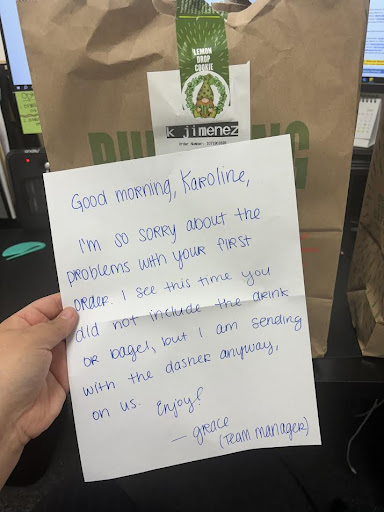 LEMON
DROP
COOKIE
k jimenez
Good morning, Karoline,
I'm so sorry about the
problems with your first
order. I see this time you
did not include the drink
or bagel, but I am sending
with the dasher anyway,
on us. Enjoy!
— grace
(Team Manager)